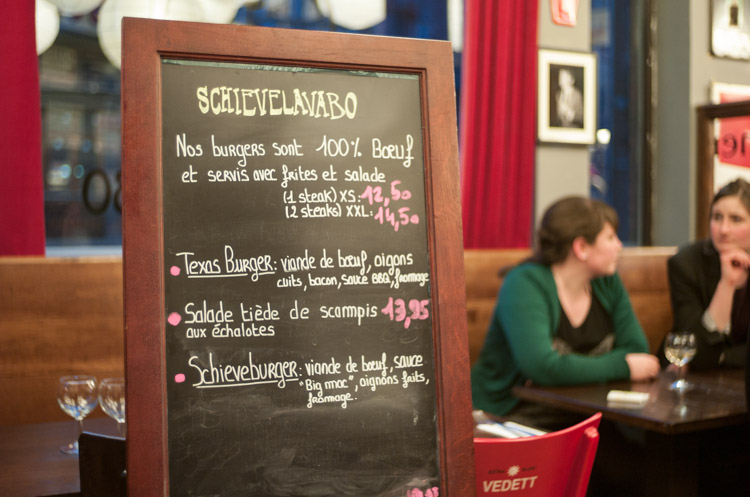 SCHIEVELAVABO
Nos burgers sont 100% Bœuf
et servis avec frites et salade
(1 steak) XS: 12,50
(2 steaks) XXL: 14,50
Texas Burger: viande de bœuf, oignons
cuits, bacon, sauce BBQ, fromage
Salade tiède de scampis 13,95
aux échalotes
Schieveburger: viande de bœuf, sauce
"Big mac", oignons frits,
fromage.
VEDETT